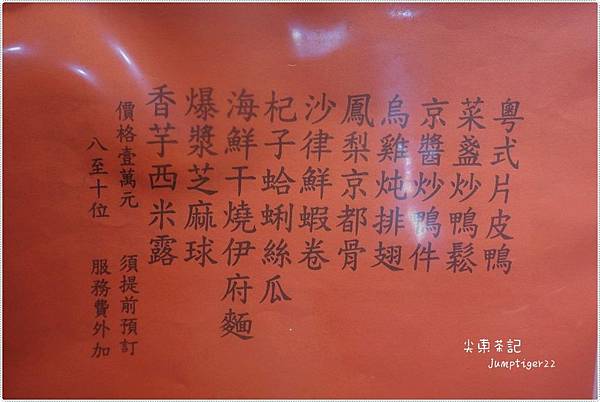 粵式片皮鴨
菜盞炒鴨鬆
京醬炒鴨件
烏雞炖排翅
鳳梨京都骨
沙律鮮蝦卷
杞子蛤蜊絲瓜
海鮮干燒伊府麵
爆漿芝麻球
香芋西米露
價格壹萬元 須提前預訂
八至十位 服務費外加
尖東茶記
Jumptiger22